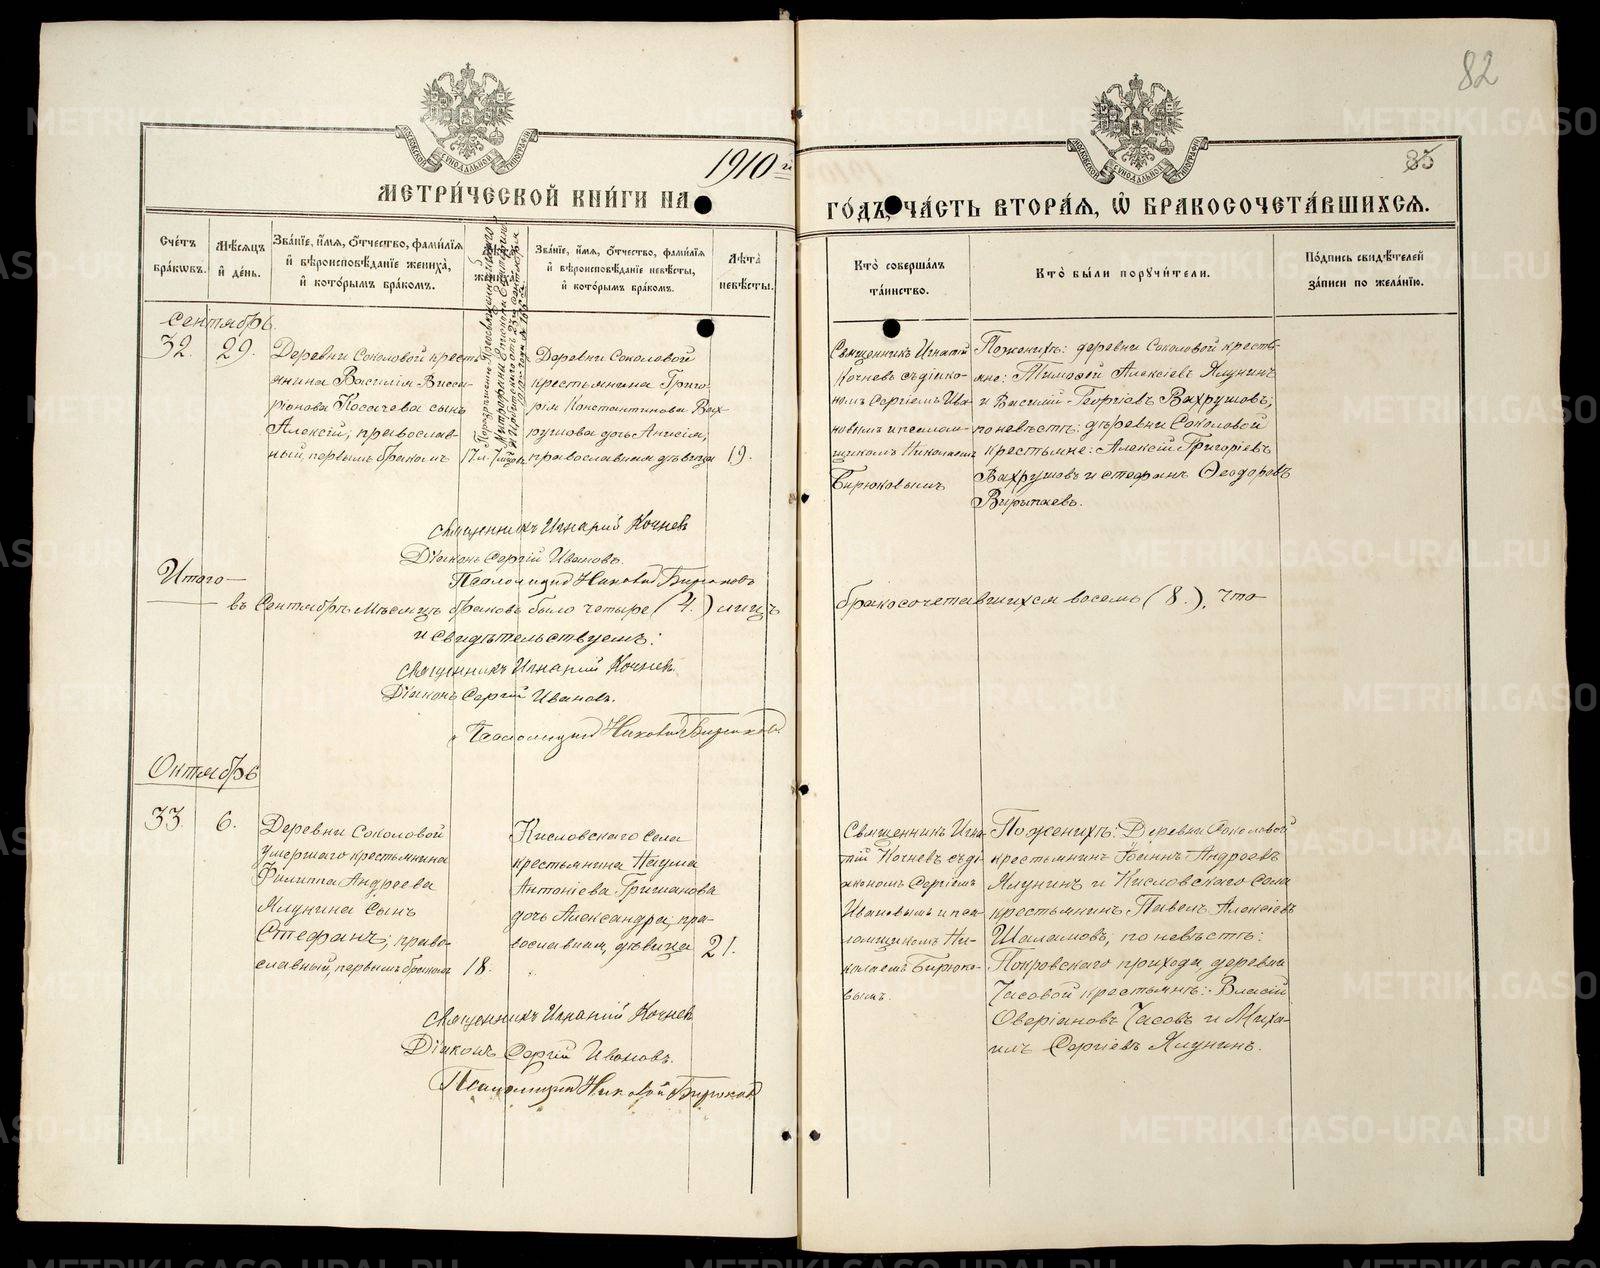 82
85
1910 г.
МЕТРИ́ЧЕСКОЙ КНИ́ГИ НА
ГО́ДЪ, ЧА́СТЬ ВТОРА́Я, Ѡ БРАКОСОЧЕТА́ВШИХСЯ.
Сче́тъ бра́кѡвъ.
Мѣ́сяцъ и де́нь.
Зва́нїе, и́мя, о́тчество, фами́лїя
и вѣроисповѣ́данїе жениха́,
и кото́рымъ бра́комъ.
Зва́нїе, и́мя, о́тчество, фами́лїя
и вѣроисповѣ́данїе невѣ́сты,
и кото́рымъ бра́комъ.
Лѣ́та невѣ́сты.
Кто̀ соверша́лъ
та́инство.
Кто̀ бы́ли поручи́тели.
По́дпись свидѣ́телей
за́писи по жела́нїю.
Сентябрь.
32.
29.
Деревни Соколовой кресть-
янина Василія Висса-
ріонова Косачева сынъ
Алексій, православ-
ный, первымъ бракомъ
17 л. 7 мѣсяц.
Деревни Соколовой
крестьянина Григо-
рія Константинова Вах-
рушова дочь Анисія,
православная, дѣвица
19.
Священникъ Игнатій
Кочневъ съ діако-
номъ Сергіемъ Ива-
новымъ и псалом-
щикомъ Николаемъ
Бирюковымъ
По женихѣ: деревни Соколовой кресть-
яне: Тимофей Алексіевъ Ялунинъ
и Василій Георгіевъ Вахрушовъ;
по невѣстѣ: деревни Соколовой
крестьяне: Алексій Григоріевъ
Вахрушовъ и Стефанъ Ѳеодоровъ
Вирыпаевъ.
Священникъ Игнатій Кочнев
Діаконъ Сергій Ивановъ.
Псаломщик Николай Бирюковъ
Итого —
въ Сентябрѣ мѣсяцѣ браковъ было четыре (4.) лицъ
бракосочетавшихся восемь (8.), что
и свидѣтельствуемъ:
Священникъ Игнатій Кочнев.
Діаконъ Сергій Ивановъ.
Псаломщик Николай Бирюков
Октябрь
33.
6.
Деревни Соколовой
умершаго крестьянина
Филиппа Андреева
Ялунина сынъ
Стефанъ, право-
славный, первымъ бракомъ
18.
Кисловскаго села
крестьянина Наума
Антоніева Гришанова
дочь Александра, пра-
вославная, дѣвица
21.
Священникъ Игна-
тій Кочневъ съ ді-
акономъ Сергіемъ
Ивановымъ и пса-
ломщикомъ Ни-
колаемъ Бирюко-
вымъ.
По женихѣ: Деревни Соколовой
крестьянинъ Іоаннъ Андреевъ
Ялунинъ и Кисловскаго села
крестьянинъ Павелъ Алексіевъ
Шаламовъ; по невѣстѣ:
Покровскаго прихода, деревни
Часовой крестьяне: Власій
Оверіановъ Часовъ и Миха-
илъ Сергіевъ Ялунинъ.
Священникъ Игнатій Кочнев
Діаконъ Сергій Ивановъ.
Псаломщик Николай Бирюков
METRIKI.GASO-URAL.RU